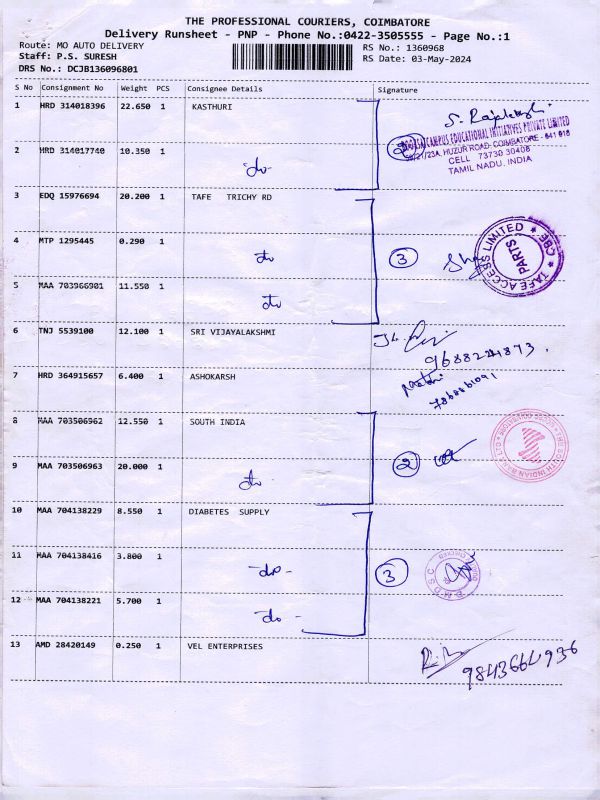 THE PROFESSIONAL COURIERS, COIMBATORE
Delivery Runsheet - PNP - Phone No.:0422-3505555 - Page No.:1
Route: MO AUTO DELIVERY
RS No.: 1360968
Staff: P.S. SURESH
RS Date: 03-May-2024
DRS No.: DCJB136096801
S No Consignment No Weight PCS Consignee Details Signature
1 HRD 314018396 22.650 1 KASTHURI
CAMPUS EDUCATIONAL INITIATIVES PRIVATE LIMITED
HUZUR ROAD, COIMBATORE - 641 018
CELL 73730 30408
TAMIL NADU, INDIA
2 HRD 314017740 10.350 1 do
3 EDQ 15976694 20.200 1 TAFE TRICHY RD
4 MTP 1295445 0.290 1 do 3
TAFE ACCESS LIMITED * CBE *
PARTS
5 MAA 703966901 11.550 1 do
6 TNJ 5539100 12.100 1 SRI VIJAYALAKSHMI
7 HRD 364915657 6.400 1 ASHOKARSH
7868861091
8 MAA 703506962 12.550 1 SOUTH INDIA
THE SOUTH INDIAN BANK LTD
9 MAA 703506963 20.000 1 do 2
10 MAA 704138229 8.550 1 DIABETES SUPPLY
11 MAA 704138416 3.800 1 -do- 3
12 MAA 704138221 5.700 1 do -
13 AMD 28420149 0.250 1 VEL ENTERPRISES
9843664936